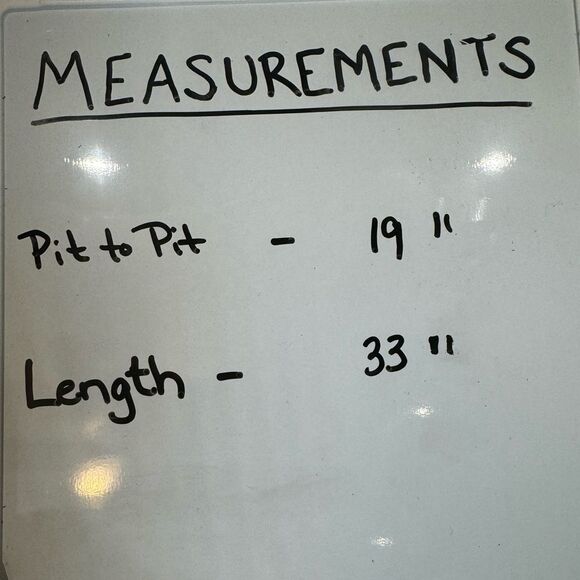 MEASUREMENTS
Pit to Pit - 19 "
Length - 33 "